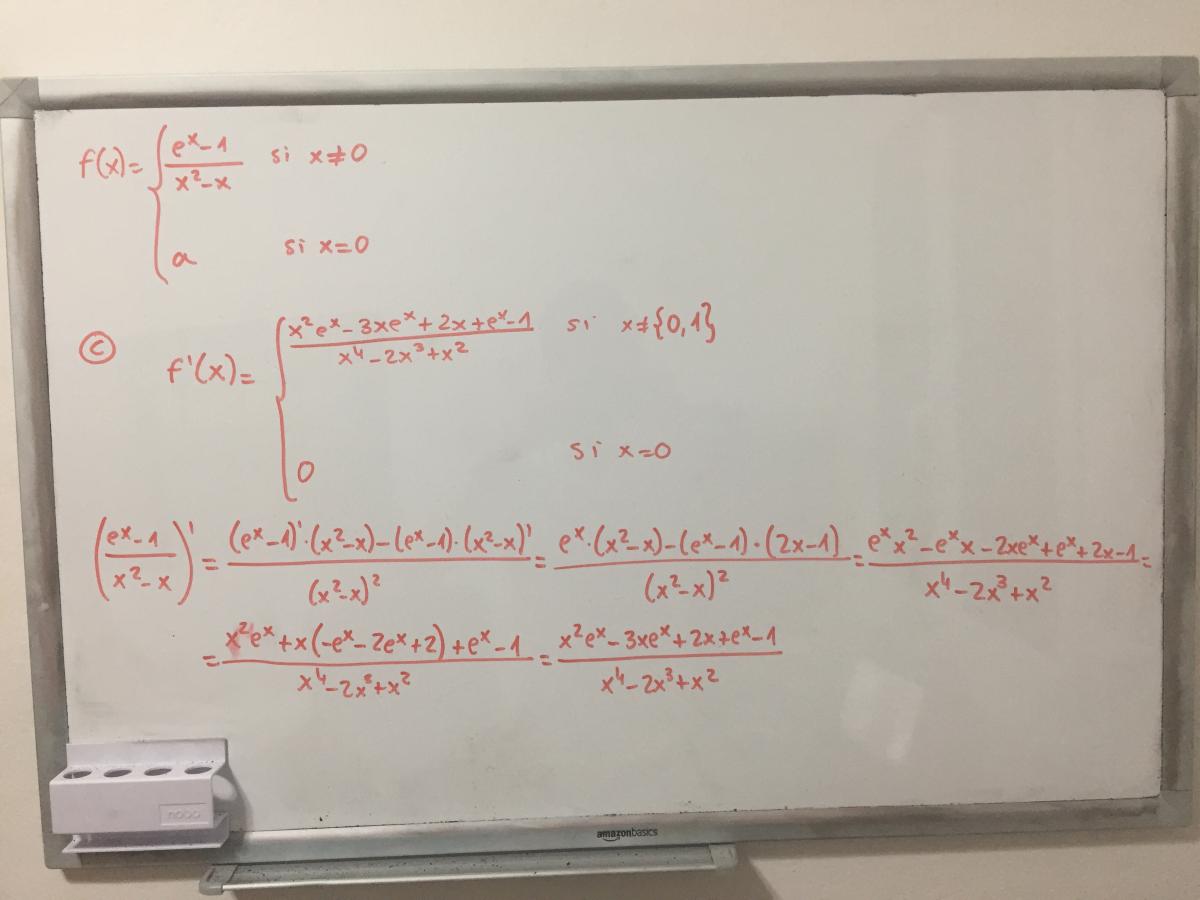 f(x)= { (e^x-1)/(x²-x) si x≠0
a si x=0
ⓒ f'(x)= { (x²e^x-3xe^x+2x+e^x-1)/(x⁴-2x³+x²) si x≠{0,1}
0 si x=0
((e^x-1)/(x²-x))' = ((e^x-1)'·(x²-x)-(e^x-1)·(x²-x)')/(x²-x)² = (e^x·(x²-x)-(e^x-1)·(2x-1))/(x²-x)² = (e^x x²-e^x x-2xe^x+e^x+2x-1)/(x⁴-2x³+x²) =
= (x²e^x+x(-e^x-2e^x+2)+e^x-1)/(x⁴-2x³+x²) = (x²e^x-3xe^x+2x+e^x-1)/(x⁴-2x³+x²)
nobo
amazonbasics